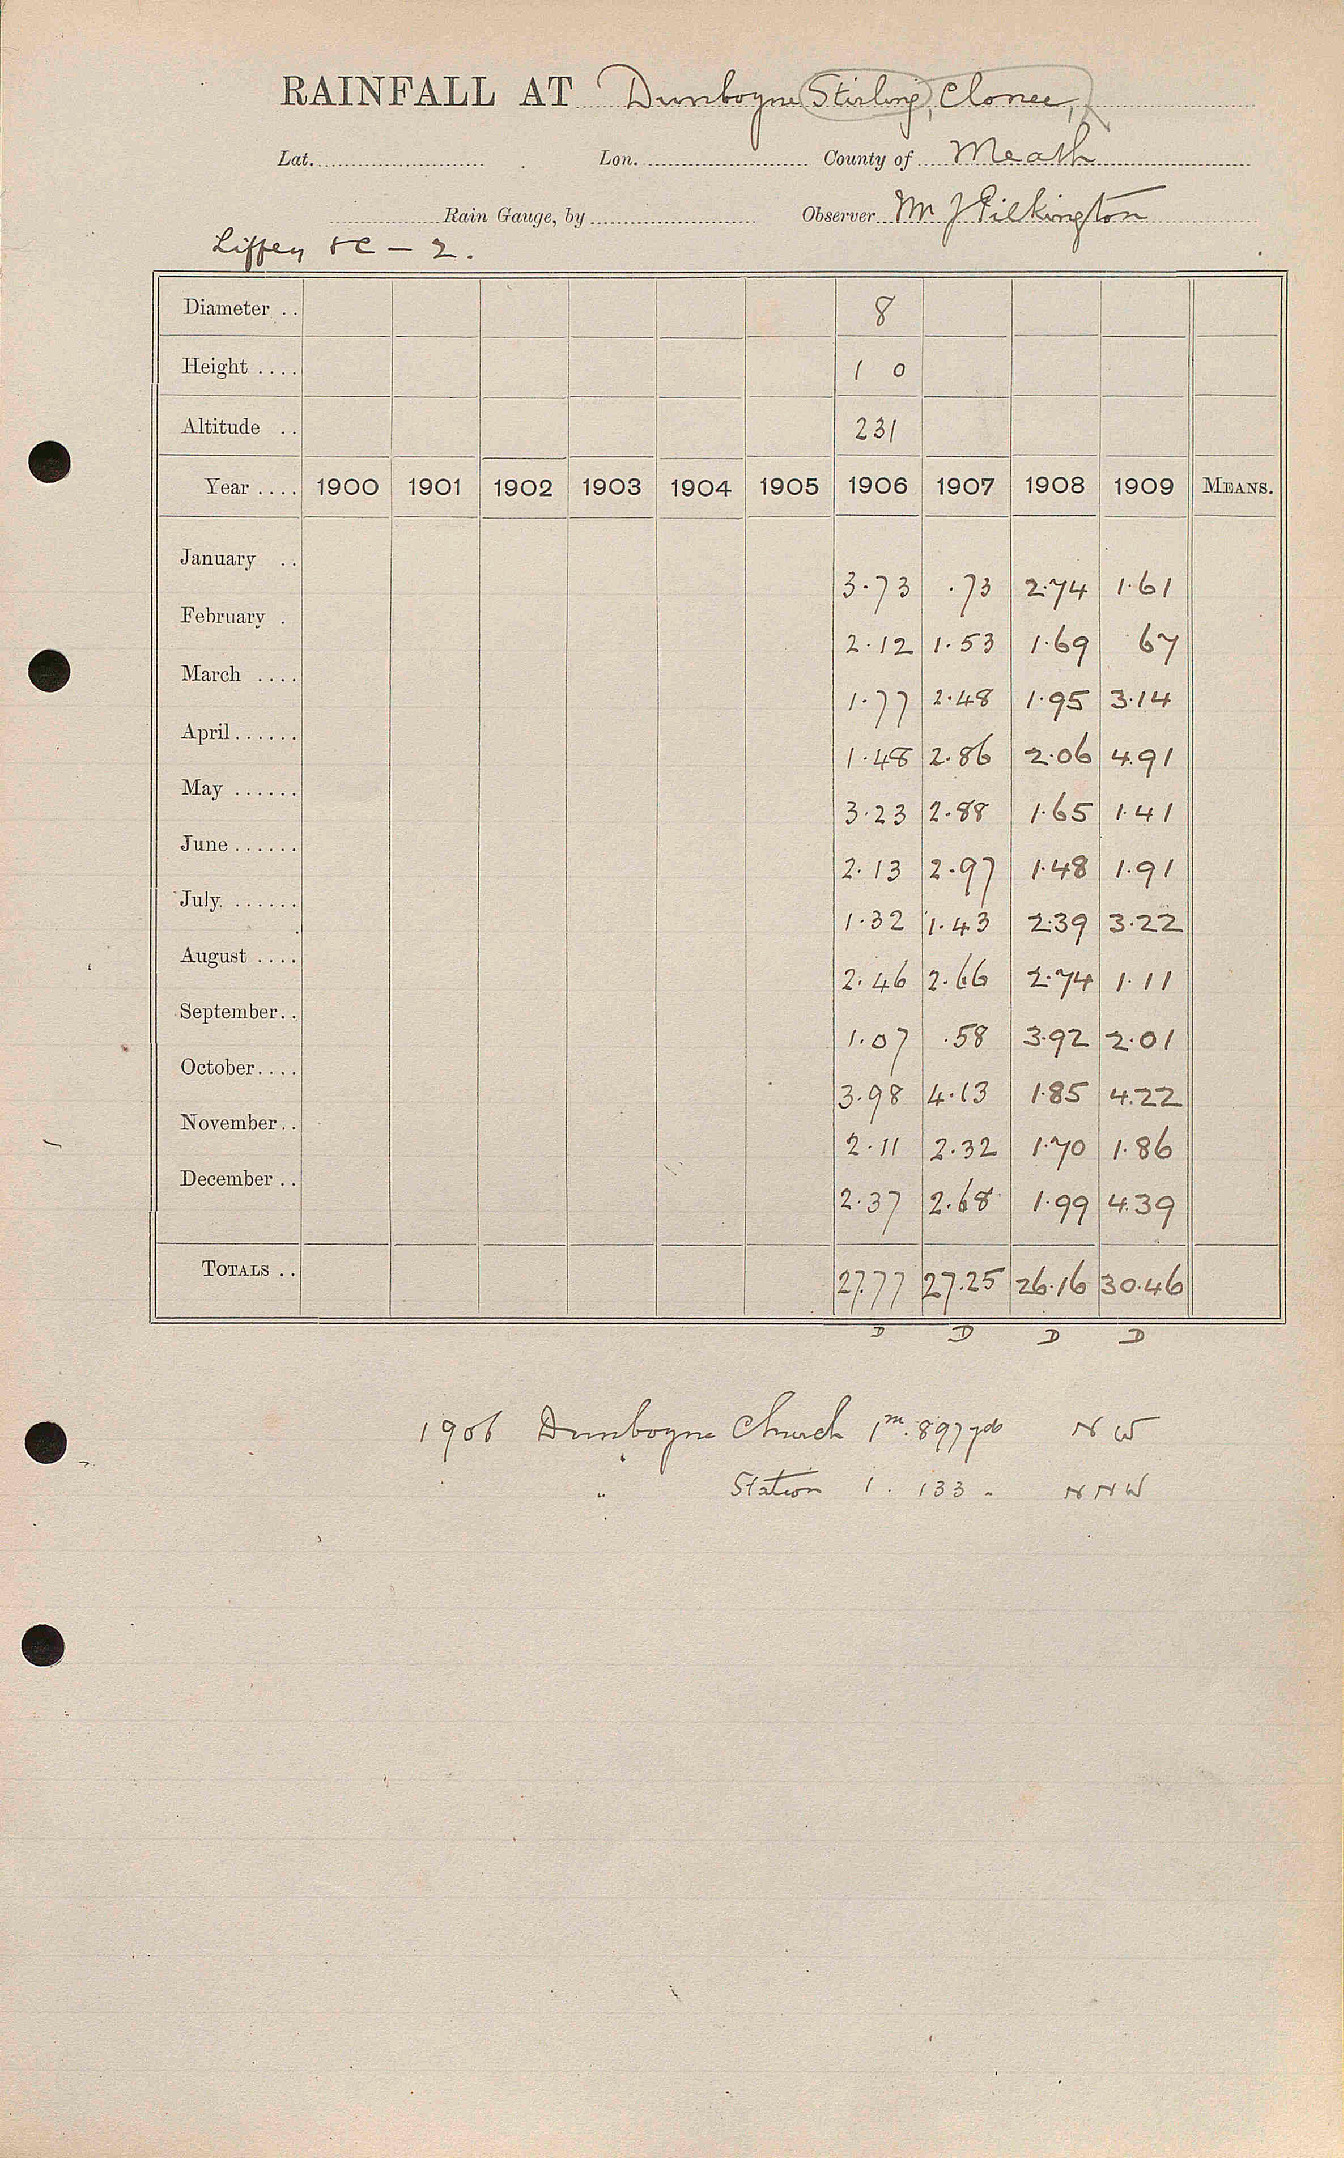 RAINFALL AT Dunboyne Stirling, Clonee,
Lat. Lon. County of Meath
Rain Gauge, by Observer Wm J Pilkington
Liffey &C – 2.
Diameter .. 8
Height .... 1 0
Altitude .. 231
Year .... 1900 1901 1902 1903 1904 1905 1906 1907 1908 1909 MEANS.
January .. 3.73 .73 2.74 1.61
February . 2.12 1.53 1.69 67
March .... 1.77 2.48 1.95 3.14
April...... 1.48 2.86 2.06 4.91
May ...... 3.23 2.88 1.65 1.41
June ...... 2.13 2.97 1.48 1.91
July. ...... 1.32 1.43 2.39 3.22
August .... 2.46 2.66 2.74 1.11
September.. 1.07 .58 3.92 2.01
October.... 3.98 4.13 1.85 4.22
November.. 2.11 2.32 1.70 1.86
December .. 2.37 2.68 1.99 4.39
TOTALS .. 27.77 27.25 26.16 30.46
D D D D
1906 Dunboyne Church 1m. 897 yds NW
" Station 1 . 133 " NNW